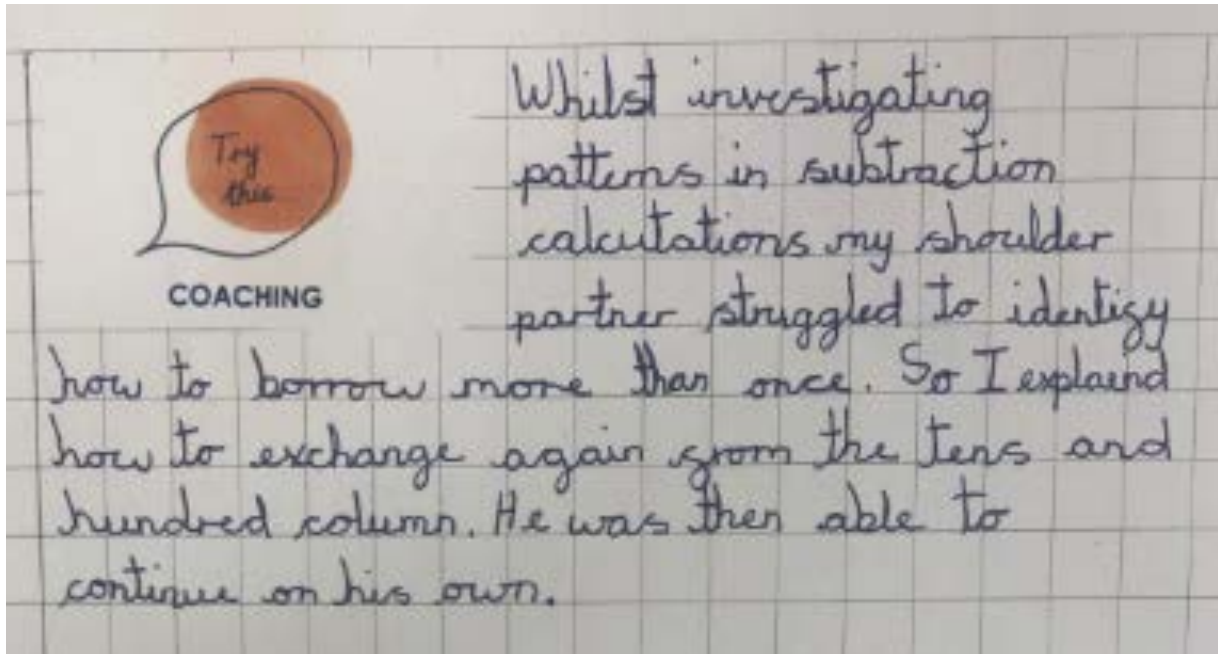 Try
this
COACHING
Whilst investigating
patterns in subtraction
calculations my shoulder
partner struggled to identify
how to borrow more than once. So I explaind
how to exchange again from the tens and
hundred column. He was then able to
continue on his own.